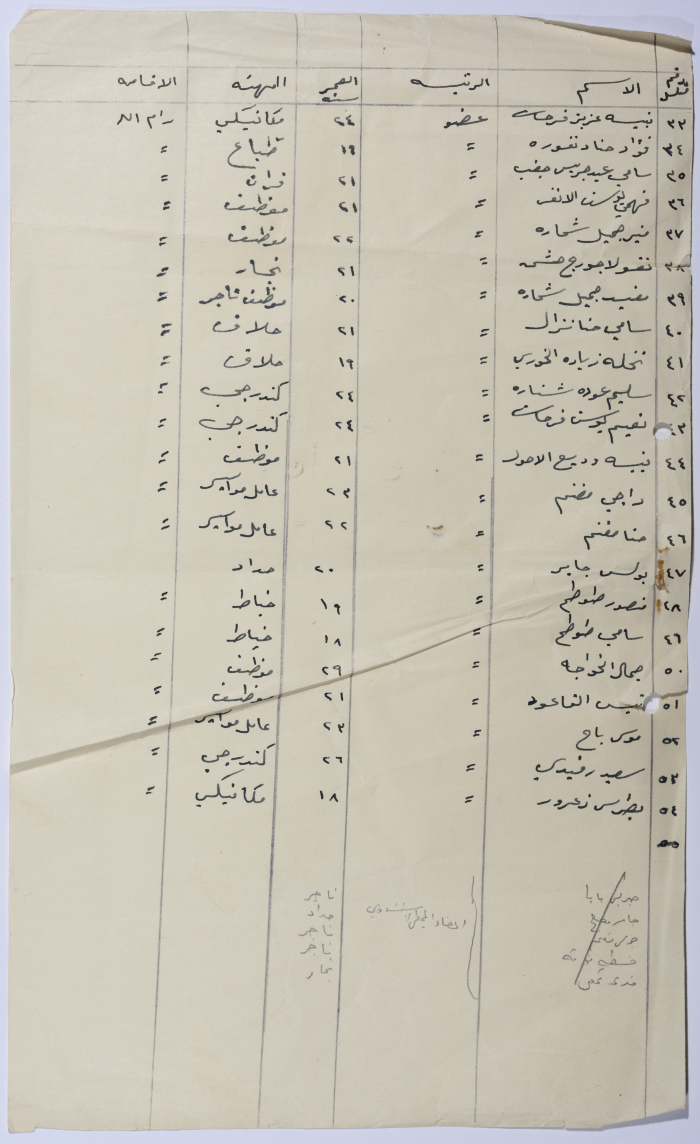 رقم متسلسل الاسم الرتبه العمر سنه المهنه الاقامه
٣٣ نبيه عزيز فرحات عضو ٢٤ مكانيكي رام الله
٣٤ فؤاد حنا دنفوره " ١٩ طباع "
٣٥ سامي عيد جريس " ٢١ فران "
٣٦ فهمي يوسف الانقر " ٢١ موظف "
٣٧ منير جميل شماره " ٢٢ موظف "
٣٨ نقولا جورج " ٢١ نجار "
٣٩ مفيد جميل شماره " ٢٠ موظف تاجر "
٤٠ سامي حنا نزال " ٢١ حلاق "
٤١ نخله زياده الخوري " ١٩ حلاق "
٤٢ سليم عوده شناره " ٢٤ كندرجي "
٤٣ نعيم يوسف فرحات " ٢٤ كندرجي "
٤٤ نبيه وديع الاحول " ٢١ موظف "
٤٥ راجي مغنم " ٢٣ عامل مواسير "
٤٦ حنا مغنم " ٢٢ عامل مواسير "
٤٧ بولس جابر " ٢٠ حداد
٤٨ منصور طوطح " ١٩ خياط "
٤٩ سامي طوطح " ١٨ خياط "
٥٠ جمال الخواجه " ٢٩ موظف "
٥١ القاعود " ٢١ موظف "
٥٢ موسى " ٢٣ عامل مواسير "
٥٣ سعيد رفيدي " ٢٦ كندرجي "
٥٤ بطرس زعرور " ١٨ مكانيكي "
٥٥
بابا تاجر
اعضاء حداد
تاجر
تاجر
نجار